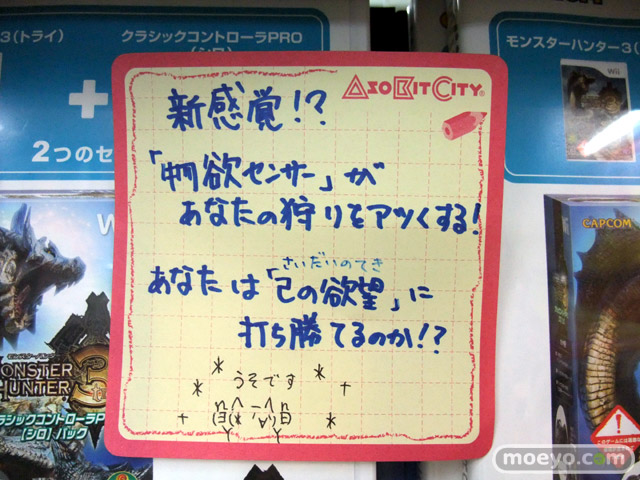 3(トライ)
クラシックコントローラPRO
(シロ)
+
2つのセ
モンスターハンター3(
Wii
CAPCOM
ASOBITCITY
新感覚!?
「物欲センサー」が
あなたの狩りをアツくする!
さいだいのてき
あなたは「己の欲望」に
打ち勝てるのか!?
うそです
W
MONSTER
HUNTER 3
クラシックコントローラP
[シロ]パック
moeyo.com